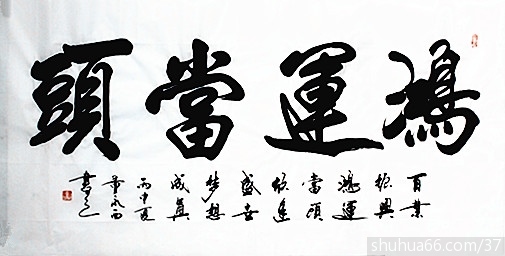 鴻運當頭
百業
振興
鴻運
當頭
欣逢
盛世
梦想
成真
丙申夏
shuhua66.com/37